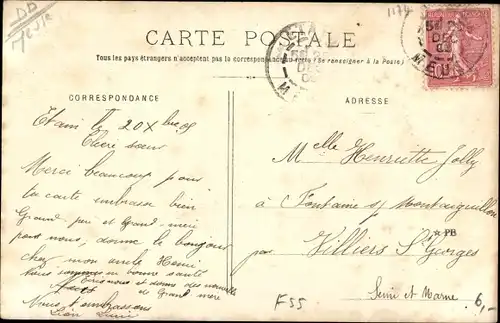 DD
Meuse
1174
CARTE POSTALE
Tous les pays étrangers n'acceptent pas la correspondance au recto (Se renseigner à la Poste)
CORRESPONDANCE
ADRESSE
Etain le 20 Xbre 05
Chère sœur
Merci beaucoup pour
ta carte embrasse bien
Grand père et Grand-mère
pour nous, donne le bonjour
chez mon oncle Henri
Nous sommes en bonne santé
Ecris nous et donne des nouvelles
de Grand mère
Nous t'embrassons
Léon
Melle Henriette Jolly
à Fontaine s/ Montaiguillon
☆ PB
par Villiers St Georges
Seine et Marne
F55
6,-